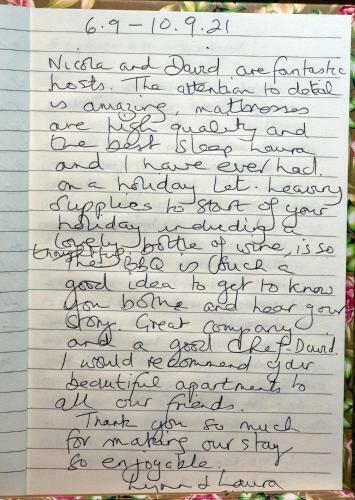 6.9 - 10.9.21
Nicola and David are fantastic
hosts. The attention to detail
is amazing, mattresses
are high quality and
the best sleep Laura
and I have ever had.
on a holiday let. Leaving
supplies to start of your
holiday including a
lovely bottle of wine, is so
thoughtful.
The BBQ is such a
good idea to get to know
you bothe and hear your
story. Great company
and a good chef-David.
I would recommend your
beautiful apartments to
all our friends.
Thank you so much
for making our stay
so enjoyable.
Lynn & Laura